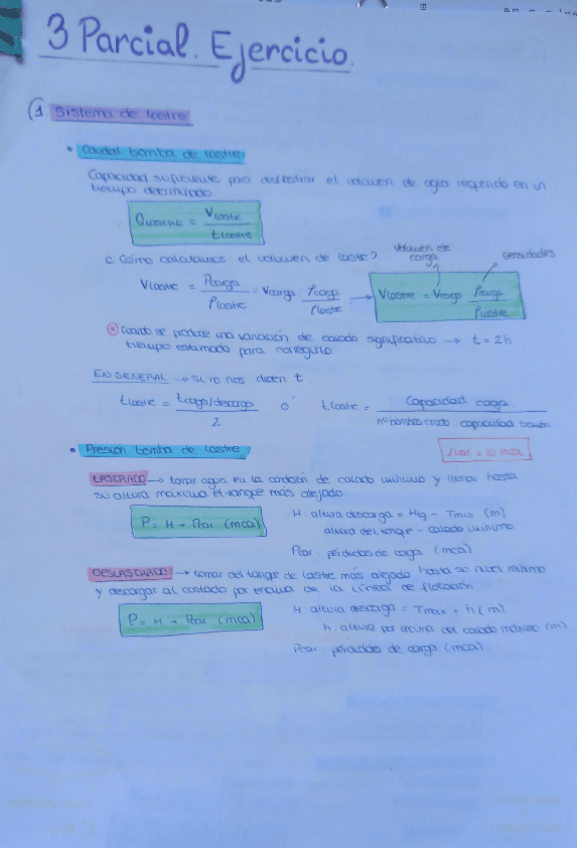 3 Parcial. Ejercicio.
1 Sistema de lastre
• Caudal bomba de lastre
Capacidad suficiente para deslastrar el volumen de agua requerido en un
tiempo determinado
Qlastre = Vlastre / tlastre
¿ Cómo calculamos el volumen de lastre?
Volumen de carga
densidades
Vlastre = Pcarga / ρlastre = Vcarga · ρcarga / ρlastre → Vlastre = Vcarga · ρcarga / ρlastre
Cuando se produce una variación de calado significativo → t = 2h
tiempo estimado para corregirlo
EN GENERAL → Si no nos dicen t.
tlastre = tcarga/descarga / 2 ó tlastre = Capacidad carga / nº bombas crudo · capacidad
• Presión bomba de lastre
1 bar = 10 mca
LASTRADO → tomar agua en la condición de calado mínimo y llenar hasta
su altura máxima el tanque más alejado
P = H + Pcar (mca)
H: altura descarga = Htq - Tmin (m)
altura del tanque - calado mínimo
Pcar: pérdidas de carga (mca)
DESLASTRADO → tomar del tanque de lastre más alejado hasta su nivel mínimo
y descargar al costado por encima de la línea de flotación
P = H + Pcar (mca)
H altura descarga = Tmax + h (m)
h: altura por encima del calado máximo (m)
Pcar: pérdidas de carga (mca)